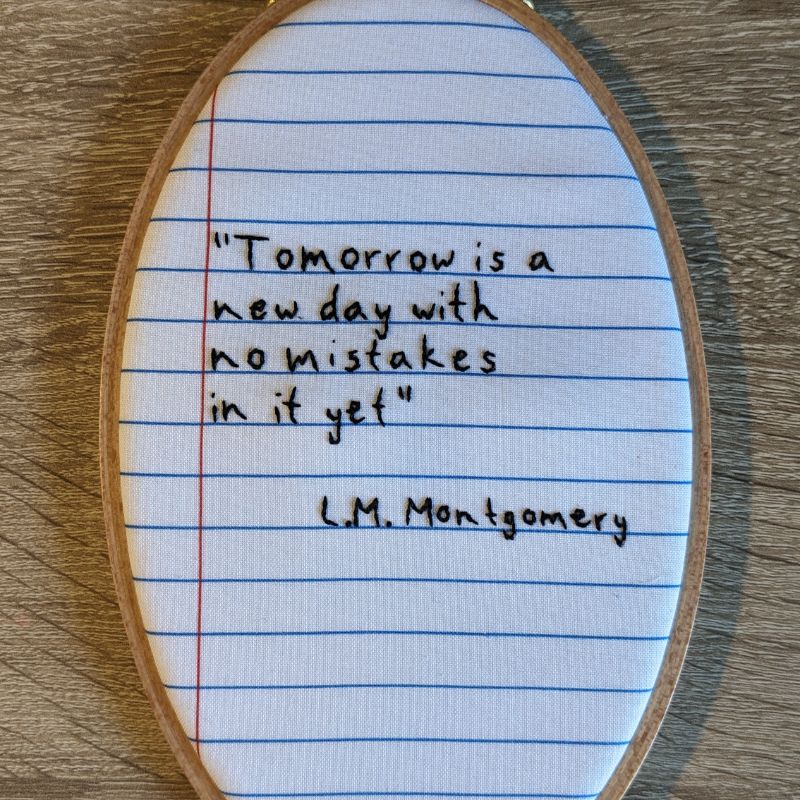 "Tomorrow is a
new day with
no mistakes
in it yet"
L.M. Montgomery